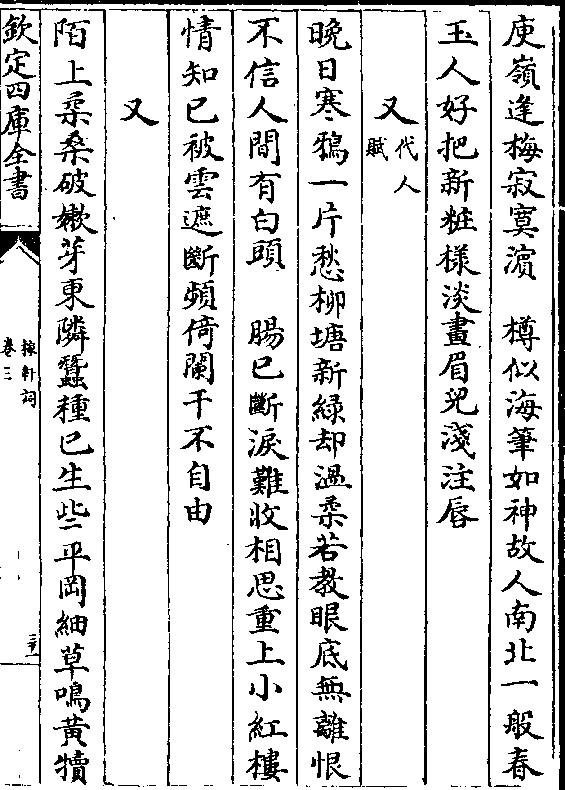 庾嶺逢梅寂寞濵　樽似海筆如神故人南北一般春
玉人好把新粧樣淡畫眉兒淺注唇
又 代人賦
晚日寒鴉一片愁柳塘新綠却溫柔若教眼底無離恨
不信人間有白頭　腸已斷淚難收相思重上小紅樓
情知已被雲遮斷頻倚闌干不自由
又
陌上柔桑破嫩芽東隣蠶種已生些平岡細草鳴黃犢
欽定四庫全書
稼軒詞
卷三